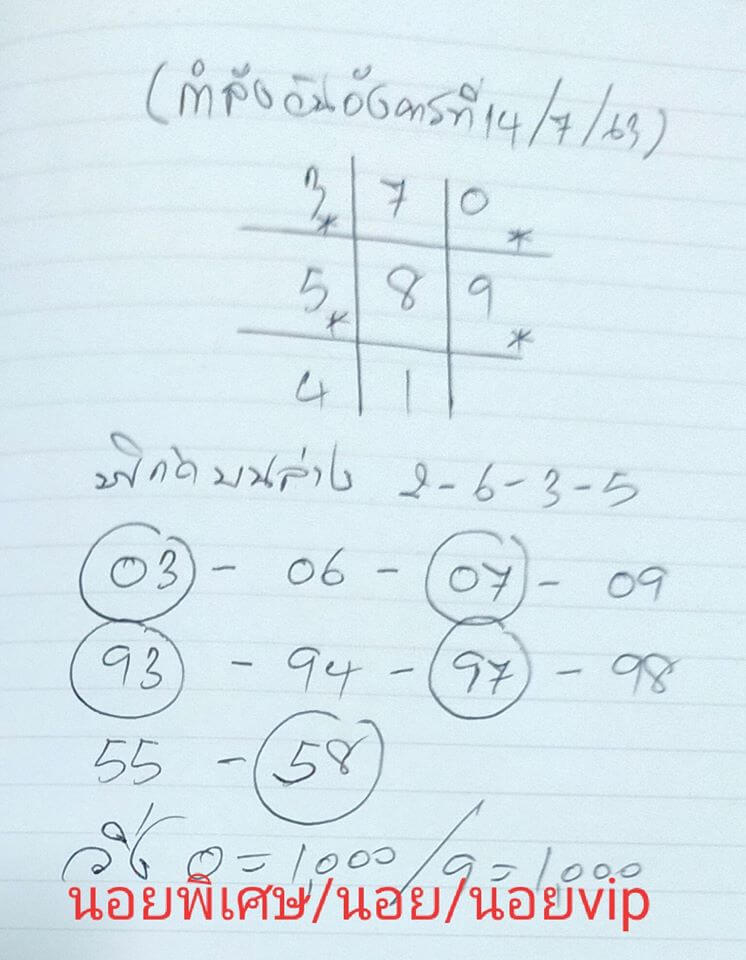 (กำลังวันอังคารที่ 14/7/63)
3* 7 0*
5* 8 9*
4 1
พิกัดบนล่าง 2-6-3-5
03 - 06 - 07 - 09
93 - 94 - 97 - 98
55 - 58
วิ่ง 0=1,000 / 9=1,000
นอยพิเศษ/นอย/นอยvip